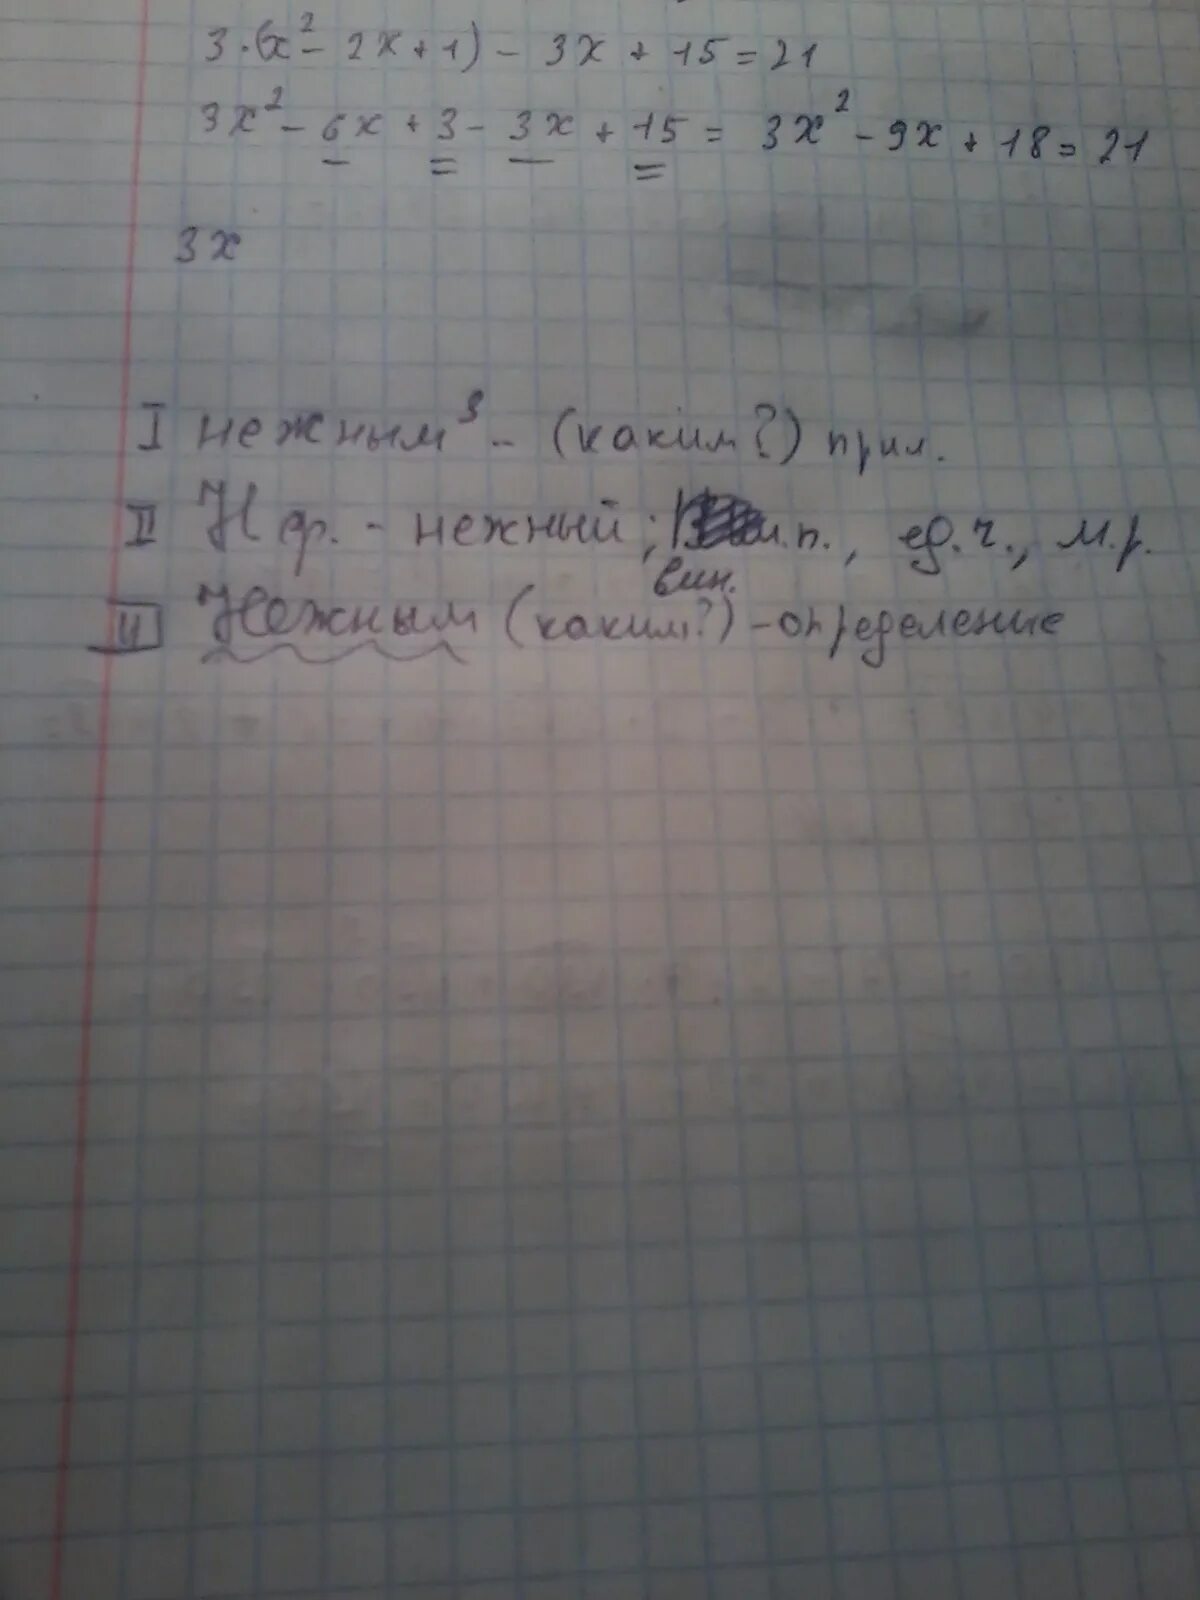 3·(x²- 2x+1) - 3x + 15 = 21
3x² - 6x + 3 - 3x + 15 = 3x² - 9x + 18 = 21
3x
I нежным³ - (каким?) прил.
II Н.ф. - нежный; п., ед.ч., м.р.
вин.
II Нежным (каким?) - определение